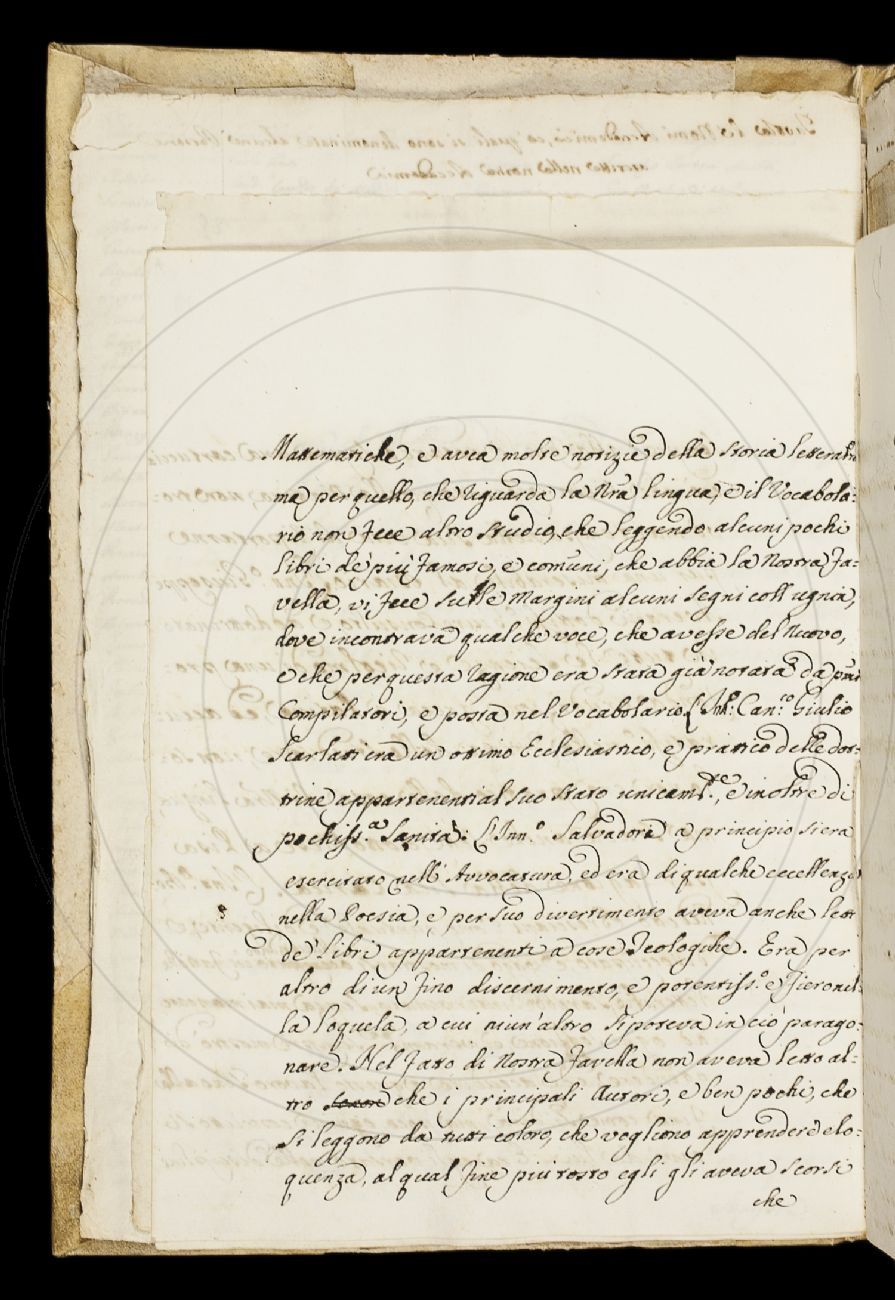 Mattematiche, e avea molte notizie della storia letteraria
ma per quello, che riguarda la Nra lingua, e il Vocabola:
rio non fece altro studio, che leggendo alcuni pochi
libri de' più famosi, e comuni, che abbia la Nostra Fa:
vella, vi fece sulle Margini alcuni segni coll'ugnia,
dove incontrava qualche voce, che avesse del Nuovo,
e che per questa ragione era stata già notata da
Compilatori, e posta nel Vocabolario. L' Can.co Giulio
Scarlatti era un ottimo Ecclesiastico, e prattico delle dot:
trine appartenenti al suo stato unicam.te, e inoltre di
pochiss.a Sanità. L'Inn.o Salvadori a principio si era
esercitato nell'Avvocatura, ed era di qualche eccellenza
nella Poesia, e per suo divertimento aveva anche lett
de' Libri appartenenti a cose Teologiche. Era per
altro di un fino discernimento, e potentiss.o e fiero nel:
la loquela, a cui niun'altro si poteva in ciò parago:
nare. Nel fatto di Nostra Favella non aveva letto al:
tro che i principali Autori, e ben pochi, che
si leggono da tutti coloro, che vogliono apprendere elo:
quenza, al qual fine più tosto egli gli aveva scorsi
che